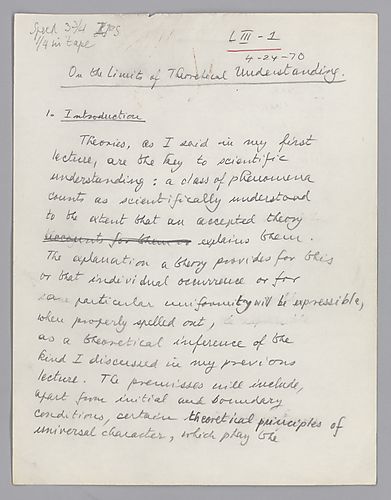 Speed 3 3/4 IPS
1/4 in tape
L III - 1
4-24-70
On the Limits of Theoretical Understanding.
1. Introduction
Theories, as I said in my first
lecture, are the key to scientific
understanding: a class of phenomena
counts as scientifically understood
to the extent that an accepted theory
account for them explains them.
The explanation a theory provides for this
or that individual occurrence or for
some particular uniformity will be expressible,
when properly spelled out,
as a theoretical inference of the
kind I discussed in my previous
lecture. The premisses will include,
apart from initial and boundary
conditions, certain theoretical principles of
universal character, which play the